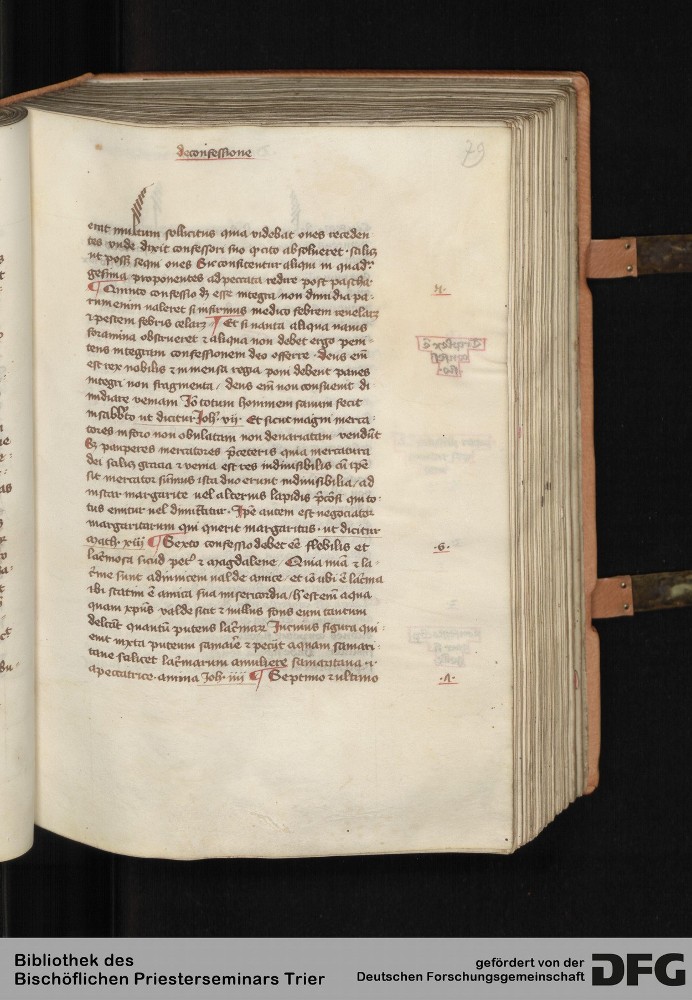 de confessione
79
erat multum sollicitus quia videbat oues receden
tes vnde dixit confessori suo qͥ cito absolueret · scilicꝫ
ut possꝫ sequi oues Sic confitentur aliqui in quadra
gesima proponentes ad peccata redire post pascha ·
¶ Quinto confessio dꝫ esse integra non dimidia pa
rum enim valeret si infirmus medico febrem reuelarꝫ
⁊ pestem febris celarꝫ ¶ Et si nauta aliqua nauis
foramina obstrueret ⁊ aliqua non debet ergo peni
tens integram confessionem deo offerre · deus em̄
est rex nobilis ⁊ in mensa regia poni debent panes
integri non fragmenta / deus em̄ non consueuit di
midiare veniam Iō totum hominem sanum fecit
in sabbōto ut dicitur Joh · vij · Et sicut magni merca
tores in foro non obulatam non denariatam vendūt
Sꝫ pauperes mercatores p̄ceteris quia mercatura
dei scilicꝫ gracia ⁊ venia est res indiuisibilis cū ip̄e
sit mercator sūmus ista duo erunt indiuisibilia / ad
instar margarite uel alterius lapidis p̄cōsi qui to
tus emitur uel dimittitur · Ip̄e autem est negociator
margaritarum qui querit margaritas · ut dicitur
Math · xiij ¶ Sexto confessio debet eē flebilis et
lacͥmosa sicud petrꝰ ⁊ magdalene / Quia mīa ⁊ la
cͥme sunt adinuicem valde amice / et iō ubi ē lacͥma
ibi statim ē amica sua misericordia / hͦ est em̄ aqua
quam xp̄us valde sitit ⁊ nullus fons eum tantum
delcāt quantū puteus lacͥmarꝫ In cuius figura qui
euit iuxta puteum samarie ⁊ petijt aquam samari
tane scilicet lacͥmarum a muliere samaritana ·i·
a peccatrice · anima Joh · iiij ¶ Septimo ⁊ ultimo
·6·
Bibliothek des
Bischöflichen Priesterseminars Trier
gefördert von der
Deutschen Forschungsgemeinschaft
DFG